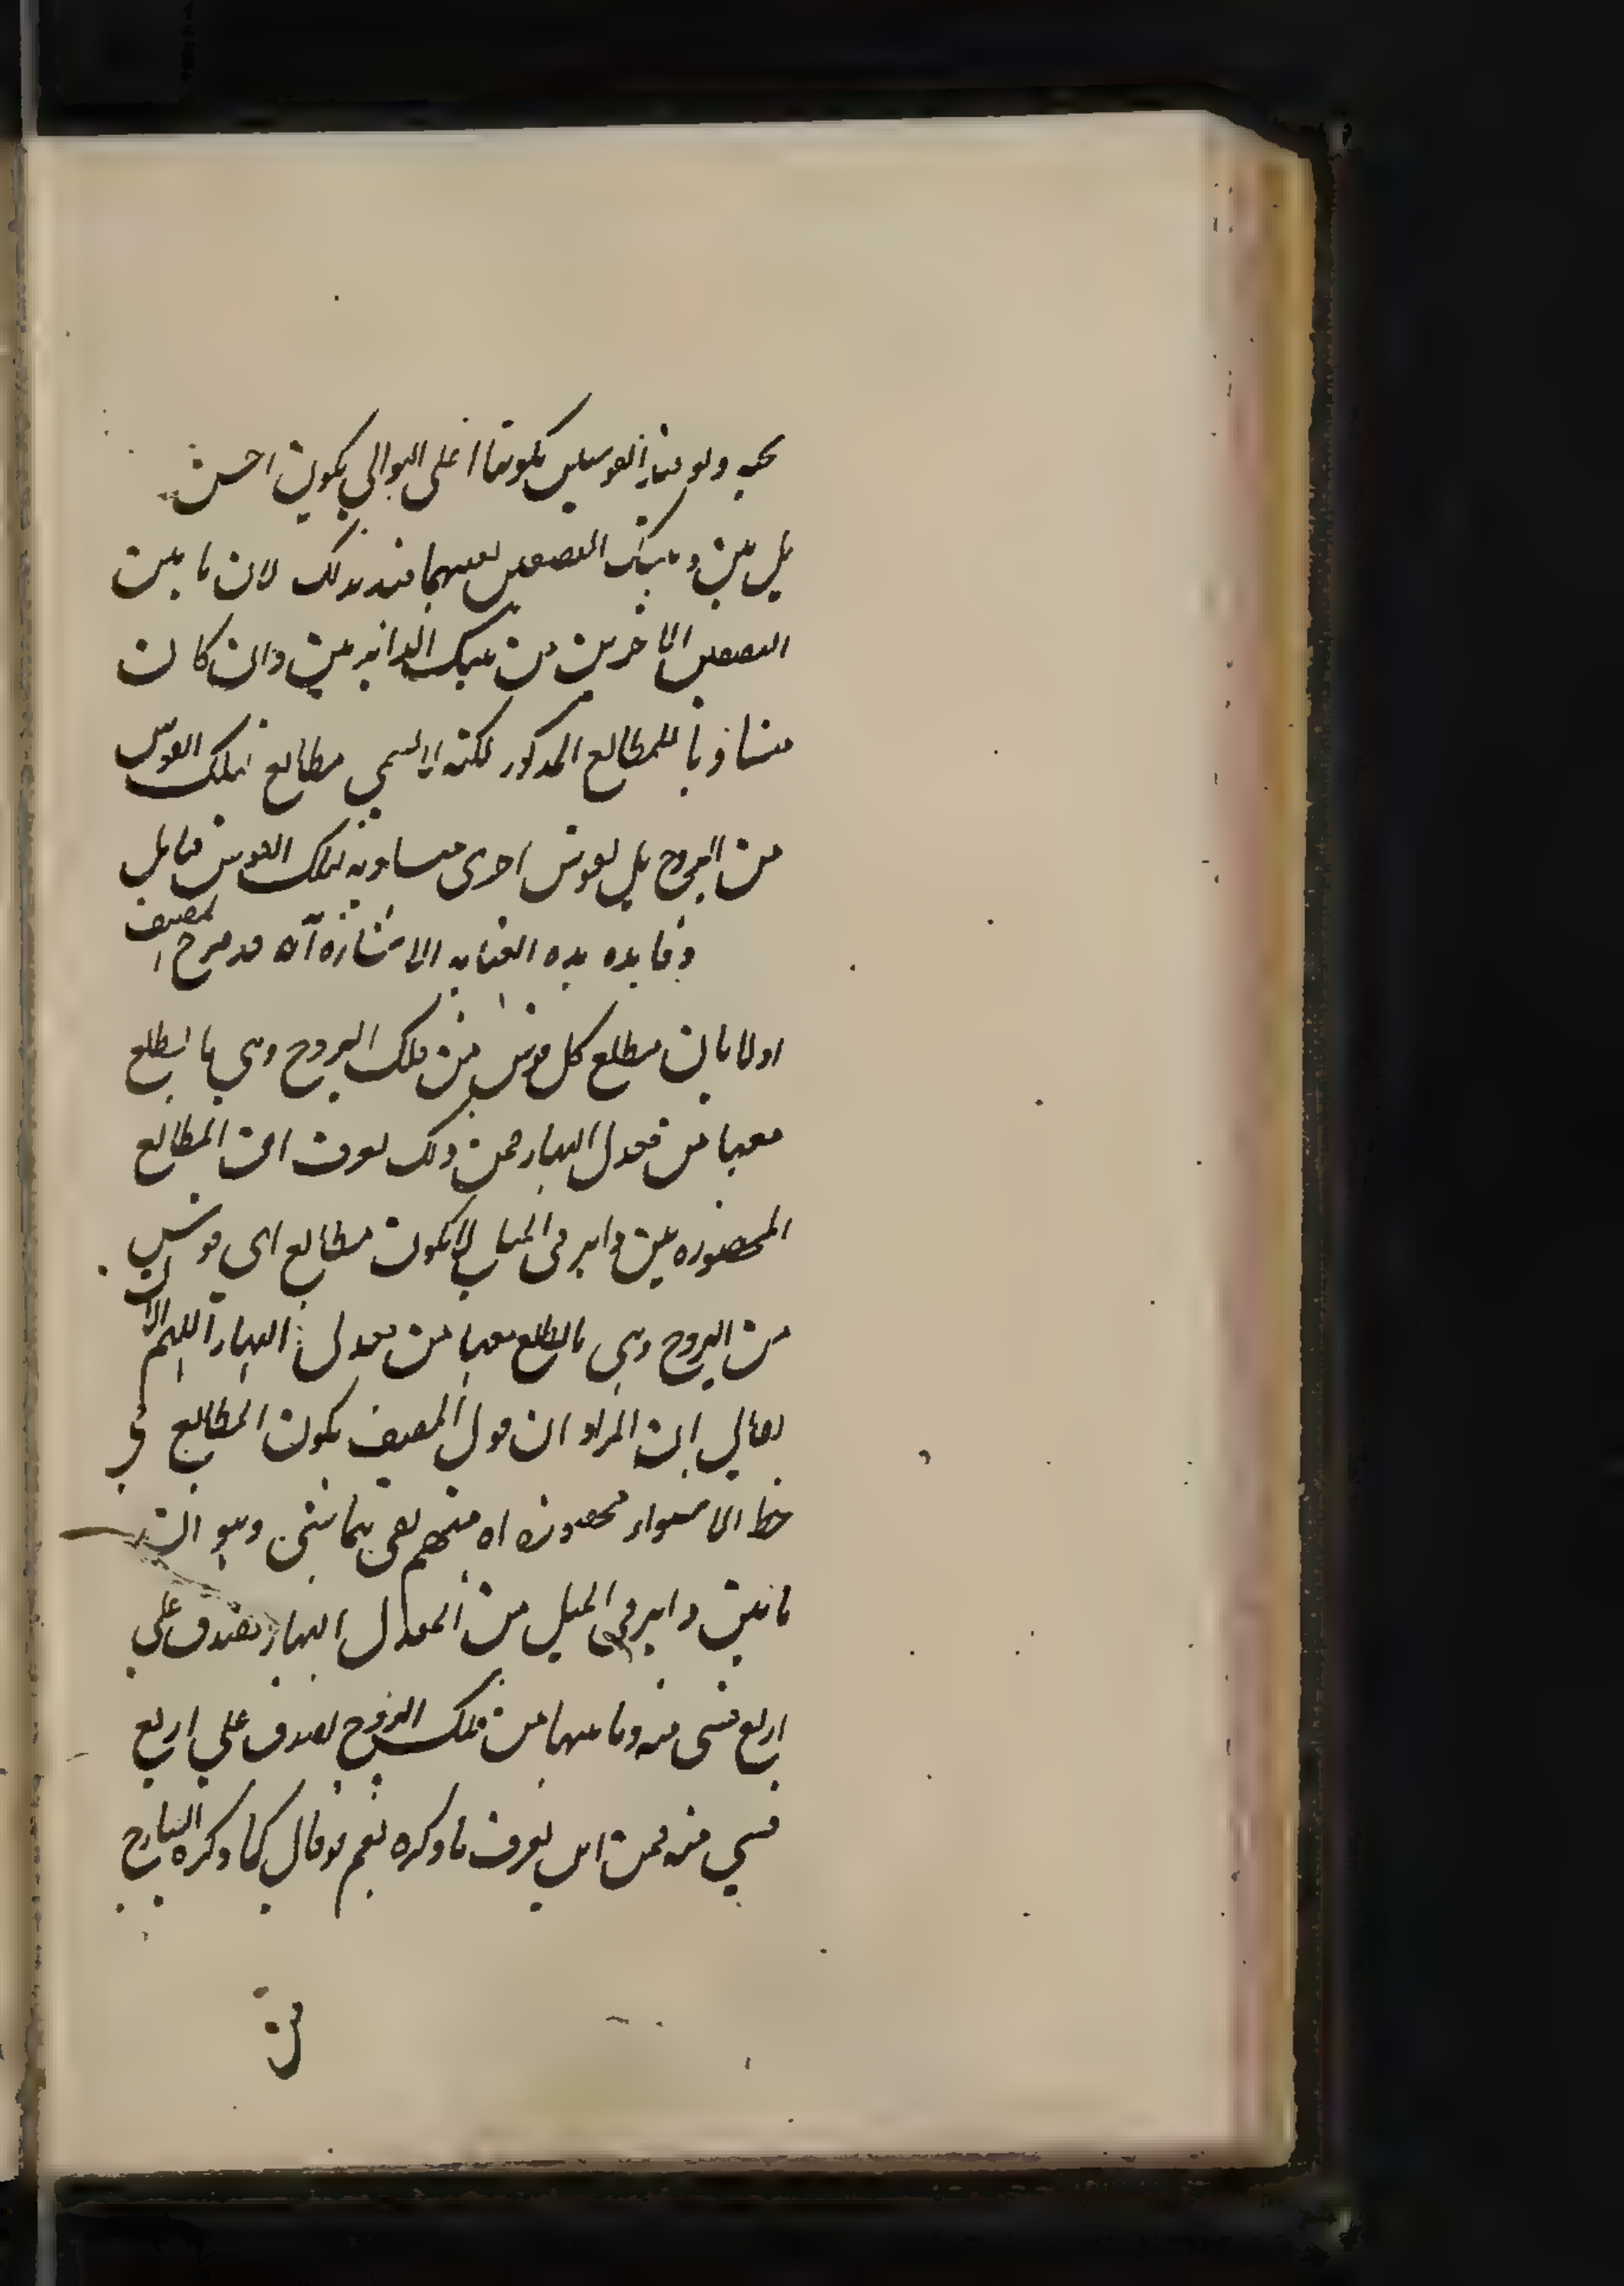 ولو القوسين بكونها على التوالي يكون احسن
بل بين النصفين بعينهما قيد بذلك لان ما بين
النصفين الاخرين من تينك الدائرتين وان كان
مساويا للمطالع المذكور لكنه لا يسمى مطالع لتلك القوس
من البروج بل لقوس اخرى مساوية لتلك القوس فتامل
وفايده هذه العناية الاشارة اه قد صرح المصنف
اولا بان مطلع كل قوس من فلك البروج وهي ما يطلع
معها من معدل النهار فمن ذلك يعرف ان المطالع
المحصوره بين دايرتى الميل لا يكون مطالع اى قوس كان
من البروج وهى ما يطلع معها من معدل النهار اللهم الا
يقال ان المراد ان قول المصنف يكون المطالع في
خط الاستواء محصورة اه منهم بقى ههنا شئ وهو ان
ما بين دايرتى الميل من المعدل النهار يصدق على
اربع قسى منه وما بينهما من فلك البروج يصدق على اربع
قسي منه فمن اين يعرف ما ذكره نعم لو قال كما ذكره الشارح
من